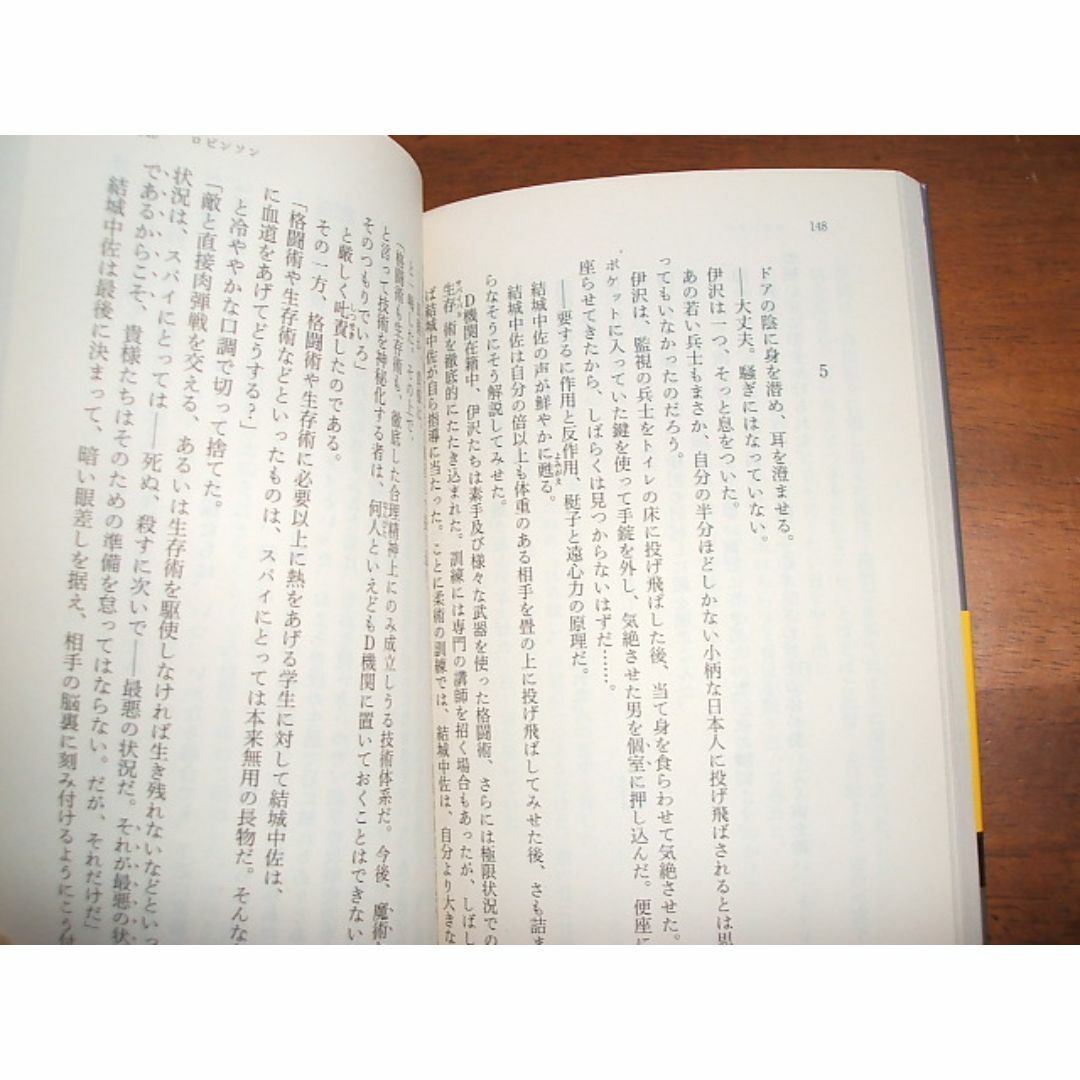 148
5
ドアの陰に身を潜め、耳を澄ませる。
――大丈夫。騒ぎにはなっていない。
伊沢は一つ、そっと息をついた。
あの若い兵士もまさか、自分の半分ほどしかない小柄な日本人に投げ飛ばされるとは思
ってもいなかったのだろう。
伊沢は、監視の兵士をトイレの床に投げ飛ばした後、当て身を食らわせて気絶させた。
ポケットに入っていた鍵を使って手錠を外し、気絶させた男を個室に押し込んだ。便座に
座らせてきたから、しばらくは見つからないはずだ……。
――要するに作用と反作用、梃子と遠心力の原理だ。
結城中佐の声が鮮やかに甦る。
よみがえ
結城中佐は自分の倍以上も体重のある相手を畳の上に投げ飛ばしてみせた後、さも詰ま
らなそうにそう解説してみせた。
D機関在籍中、伊沢たちは素手及び様々な武器を使った格闘術、さらには極限状況での
生存術を徹底的にたたき込まれた。訓練には専門の講師を招く場合もあったが、しばし
ば結城中佐が自ら指導に当たった。ことに柔術の訓練では、結城中佐は、自分より大きな
ロビンソン
「格闘術も生存術も、徹底した合理精神上にのみ成立しうる技術体系だ。今後、魔術
と言って技術を神秘化する者は、何人といえどもD機関に置いておくことはできない
そのつもりでいろ」
と厳しく叱責したのである。
しっせき
その一方、格闘術や生存術に必要以上に熱をあげる学生に対して結城中佐は、
「格闘術や生存術などといったものは、スパイにとっては本来無用の長物だ。そんな
に血道をあげてどうする?」
と冷ややかな口調で切って捨てた。
「敵と直接肉弾戦を交える、あるいは生存術を駆使しなければ生き残れないなどといっ
状況は、スパイにとっては――死ぬ、殺すに次いで――最悪の状況だ。それが最悪の状
であるからこそ、貴様たちはそのための準備を怠ってはならない。だが、それだけだ」
結城中佐は最後に決まって、暗い眼差しを据え、相手の脳裏に刻み付けるようにこう付